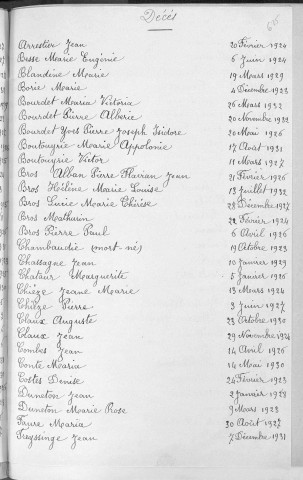 Décès
Arrestier Jean 20 Février 1924
Besse Marie Eugénie 6 Juin 1924
Blandine Marie 19 Mars 1929
Borie Marie 4 Décembre 1923
Bourdet Maria Victoria 26 Mars 1932
Bourdet Pierre Alberic 20 Novembre 1932
Bourdet Yves Pierre Joseph Isidore 20 Mai 1926
Boutouyrie Marie Appolonie 17 Août 1931
Boutouyrie Victor 11 Mars 1927
Bros Alban Pierre Flavian Jean 21 Février 1926
Bros Hélène Marie Louise 13 Juillet 1932
Bros Lucie Marie Thérèse 28 Décembre 1927
Bros Mathurin 22 Février 1924
Bros Pierre Paul 6 Avril 1926
Chambaudie (mort-né) 19 Octobre 1923
Chassagne Jean 10 Janvier 1929
Chataur Marguerite 5 Janvier 1926
Chièze Jeane Marie 13 Mars 1924
Chièze Pierre 3 Juin 1927
Claux Auguste 23 Octobre 1930
Claux Jean 29 Novembre 1924
Combes Jean 14 Avril 1926
Conte Maria 14 Mai 1930
Costes Denise 24 Février 1923
Duneton Jean 2 Janvier 1928
Duneton Marie Rose 9 Mars 1923
Faure Maria 30 Août 1927
Freyssinge Jean 7 Décembre 1931